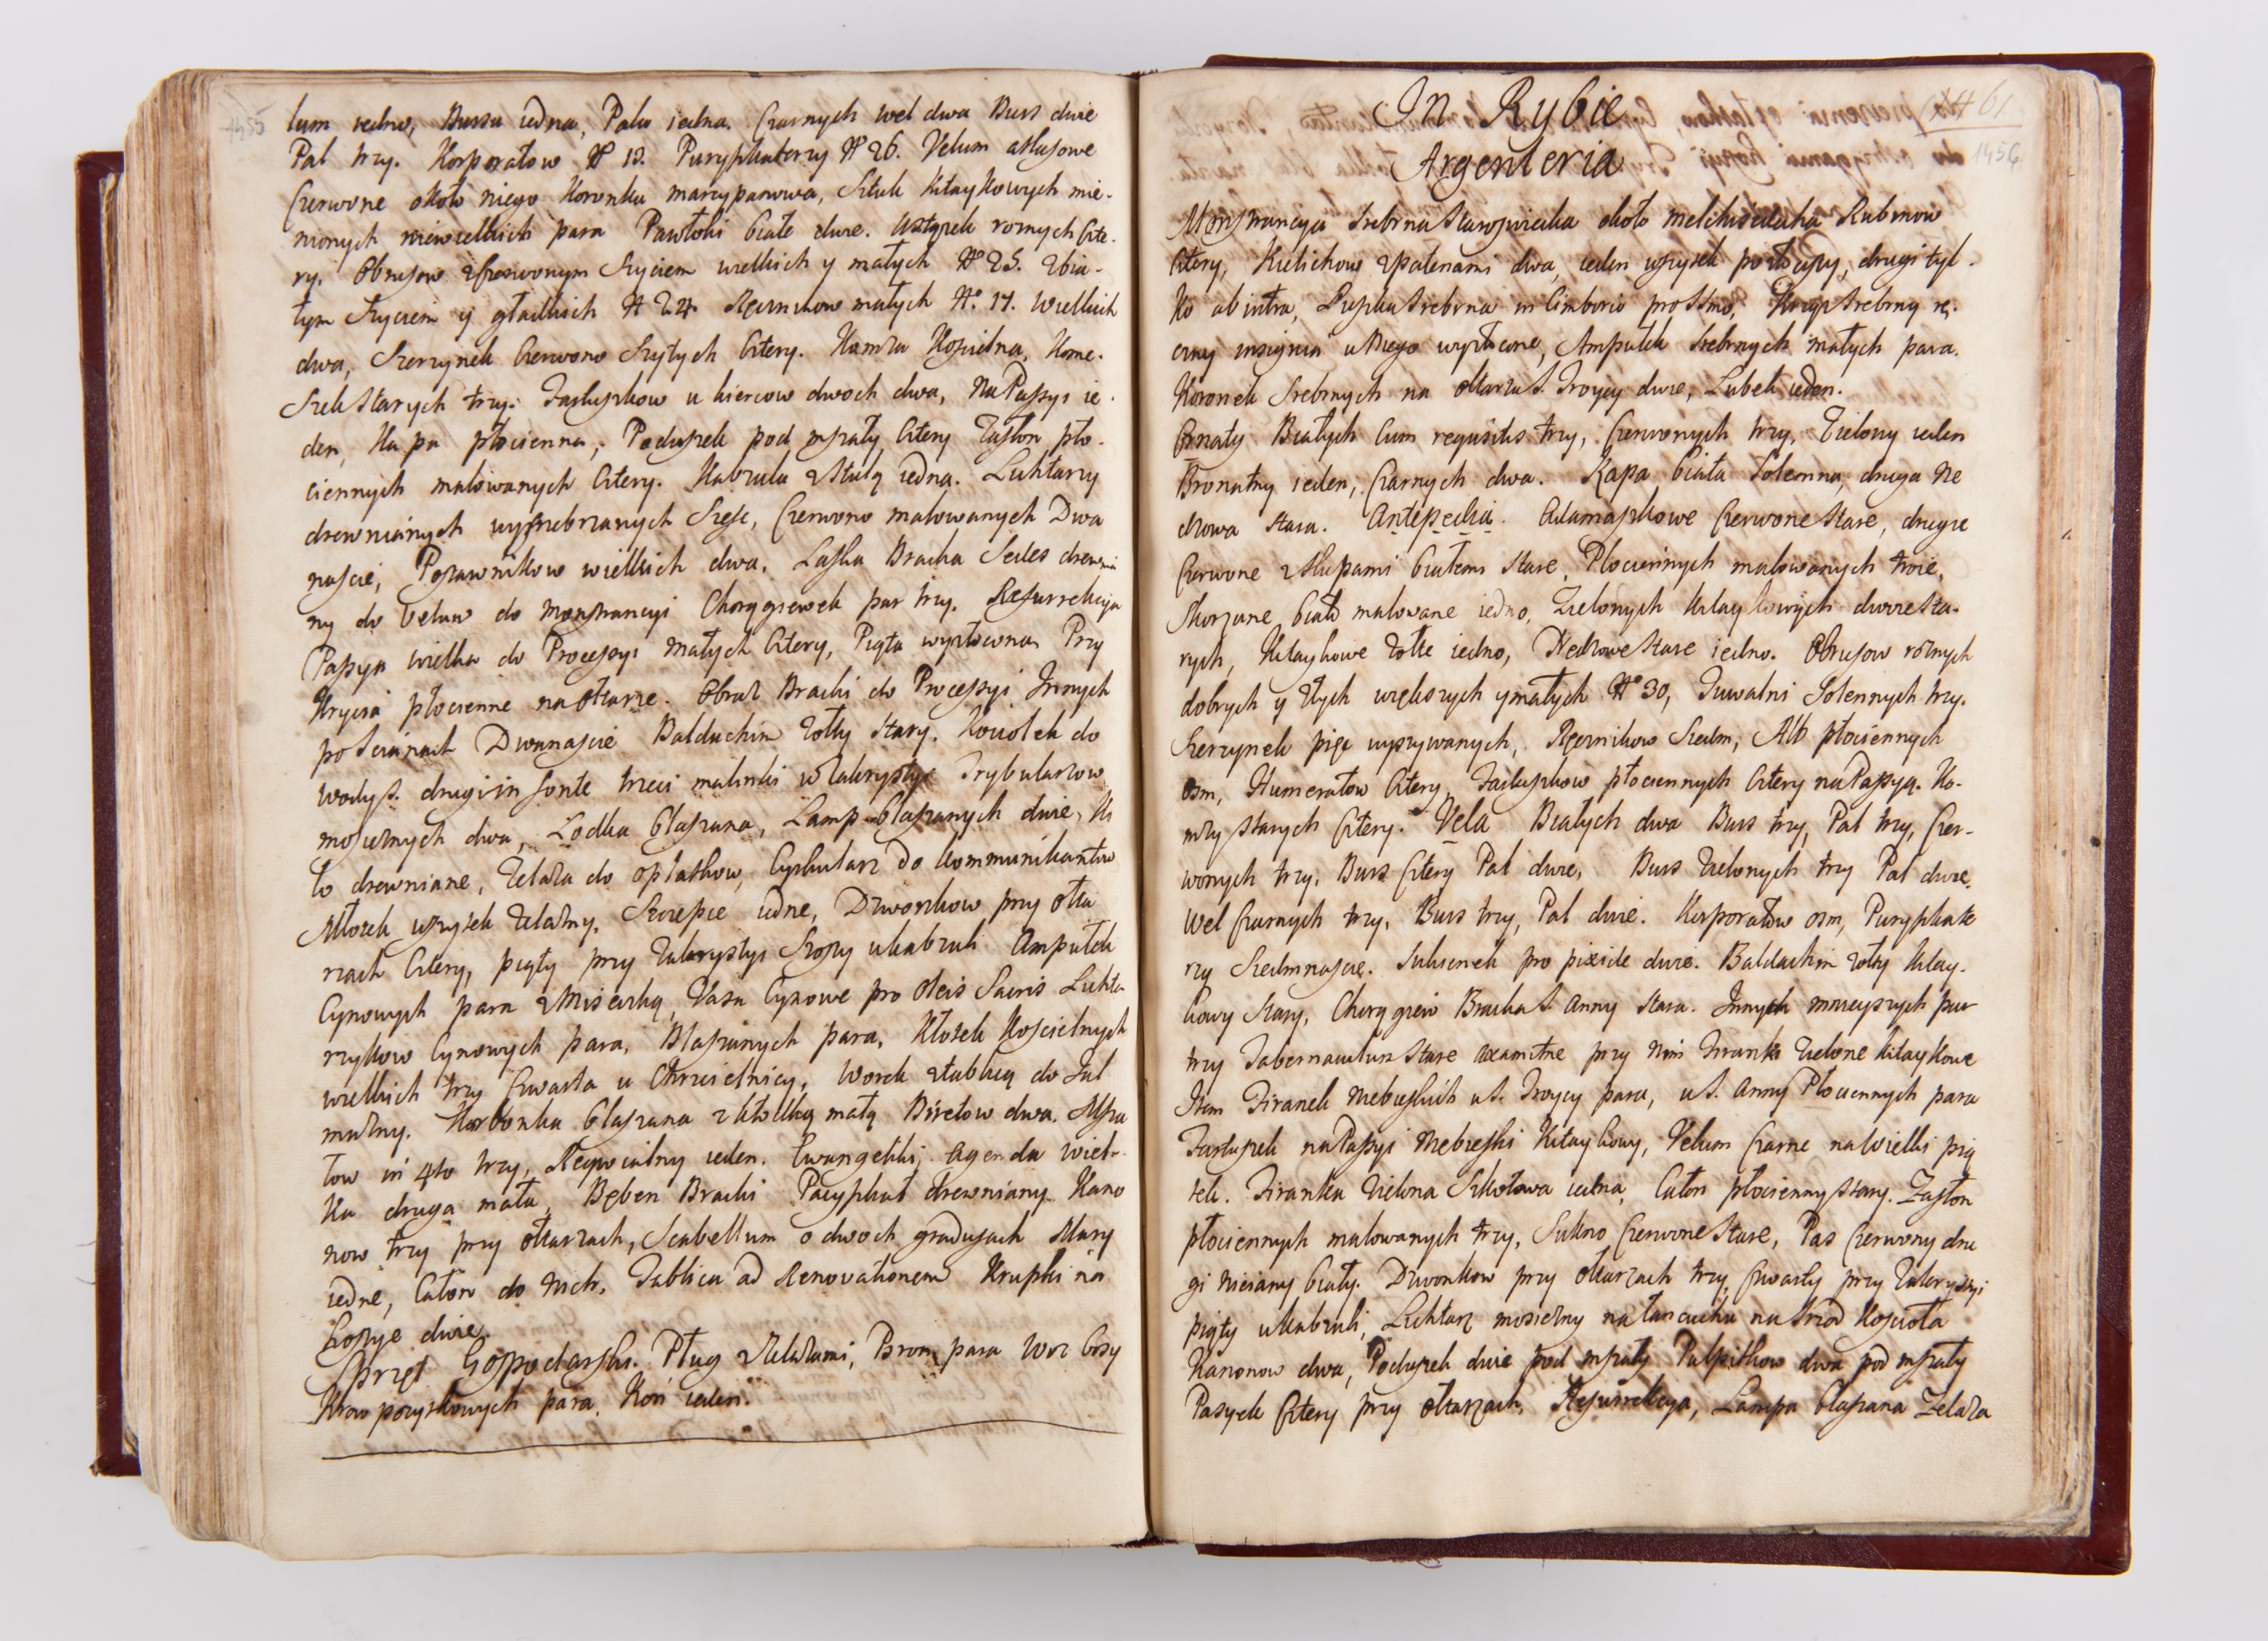 1455
lum iedno, Bursa iedna, Pala iedna. Czarnych wel dwa Burs dwie
Pal trzy. Korporałow N 13. Puryfikaterzy N 26. Velum atłasowe
Czerwone około niego Koronka marcypanowa, Sztuk Kitaykowych mie-
nionych niewielkich para Pawłoki białe dwie. Wstążek roznych czte-
ry. Obrusow z czerwonym szyciem wielkich y małych No 25. z bia-
łym Szyciem y gładkich N 24. Ręcznikow małych No. 17. Wielkich
dwa, Szerzynek Czerwono Szytych Cztery. Komza Koscielna, Kome-
szek Starych trzy. Fartuszkow u kiercow dwoch dwa, Na Passyi ie-
den, Kapa płocienna, Poduszek pod mszały Cztery Zasłon pło-
ciennych malowanych Cztery. Kabzula z Stułą iedna. Lichtarzy
drewnianych wysrebrzanych Szesc, Czerwono malowanych Dwa
nascie, Postawnikow wielkich dwa, Laska Bracka Sedes drewnia
ny do Velum do Monstrancyi Chorągiewek par trzy. Resurrekcya
Passya wielka do Processyi małych Cztery, Piąta Przy
Krycia płocienne na ołtarze. Obraz Bracki do Processyi Innych
po Scianach Dwanascie Baldachim zołty Stary. Kociołek do
wody S. drugi in fonte trzeci malenki w Zakrystyi Trybularzow
mosiężnych dwa, Łodka blaszana, Lamp blaszanych dwie, Ko
ło drewniane, Zelaza do opłatkow, Cyrkularz do kommunikantow
Młotek wszystek zelazny. Szczepce iedne, Dzwonkow przy ołta
rzach Cztery, piąty przy Zakrystyi Szosty u kabzuli Ampułek
Cynowych para z Miseczką, Vasa Cynowe pro oleis Sacris Lichta
rzykow Cynowych para, Blaszanych para, Kłotek Koscielnych
wielkich trzy Czwarta u Chrzcielnicy, Worek z tablicą do Jał
muzny. Karbonka blaszana z kłotką małą Biretow dwa. Msza
łow in 4to trzy, Requialny ieden. Ewangeliki, Agenda wiel-
ka druga mała, Bęben Bracki Pacyfikał drewniany Kano
now trzy przy ołtarzach, Scabellum o dwoch gradusach Mary
iedne, Całon do nich. Tablica ad Renovationem Krupki na
dwie.
Sprzęt Gospodarski. Pług z Zelazami, Bron para Woz bosy
Krow pozyskowych para, Kon ieden.
61
1456
In Rybie
Argenteria
Monstrancya Srebrna Staroswiecka około melchisedecha Rubinow
Cztery, Kielichow z patenami dwa, ieden wszystek pozłocisty, drugi tyl-
ko ab intra, Puszka Srebrna in Ciborio pro SSmo, Krzyż Srebrny rę-
czny insignia u Niego wyzłacane, Ampułek Srebrnych małych para.
Koronek Srebrnych na ołtarzu S. Troycy dwie, Lubek ieden.
Ornaty Białych cum requisitis trzy, Czerwonych trzy, Zielony ieden
Bronatny ieden, Czarnych dwa. Kapa biała Solemna, druga Ne
drowa stara. Antepedia. Adamaszkowe Czerwone stare, drugie
Czerwone z słupami białemi stare, Płociennych malowanych troie,
Skorzane biało malowane iedno, Zielonych Kitaykowych dwoie sta-
rych, Kitaykowe zołte iedno, Nedrowe stare iedno. Obrusow roznych
dobrych y złych większych y małych No 30, Tuwalni Solennych trzy.
Szerzynek pięc wyszywanych, Ręcznikow Siedm, Alb płociennych
osm, Humerałow Cztery, Fartuszkow płociennych Cztery na Passyą. Ko-
mzy starych Cztery. Vela Białych dwa Burs trzy, Pal trzy, Czer-
wonych trzy, Burs Cztery Pal dwie, Burs Zielonych trzy Pal dwie.
Wel Czarnych trzy, Burs trzy, Pal dwie. Korporałow osm, Puryfikate
rzy Siedmnascie. Sukienek pro pixide dwie. Baldachim zołty Kitay-
kowy stary, Chorągiew Bracka S. Anny stara. Innych mnieyszych par
trzy Tabernaculum stare axamitne przy nim Firanki Zielone kitaykowe
Item Firanek Niebieskich u S. Troycy para, u S. Anny Płociennych para
Fartuszek na Passyi Niebieski Kitaykowy, Velum Czarne na Wielki pią
tek. Firanka Zielona Szkotowa iedna, Całon płocienny stary. Zasłon
płociennych malowanych trzy, Sukno Czerwone stare, Pas Czerwony dru
gi niciany biały. Dzwonkow przy ołtarzach trzy, Czwarty przy Zakrystyi
piąty u kabzuli, Lichtarz mosiezny na łancuchu na srzod Koscioła
Kanonow dwa, Poduszek dwie pod mszały Pulpitkow dwa pod mszały
Pasyek Cztery przy ołtarzach, Resurrekcya, Lampa blaszana Zelaza